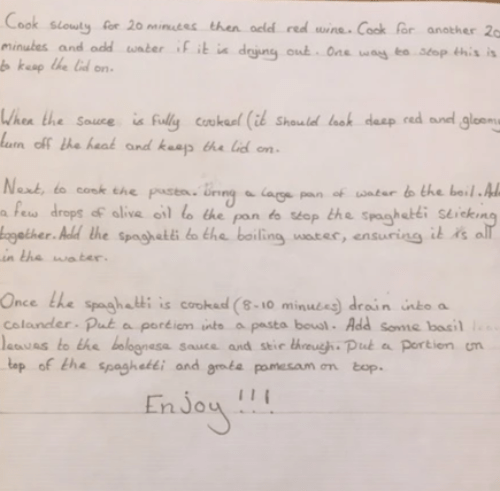 Cook slowly for 20 minutes then add red wine. Cook for another 20
minutes and add water if it is drying out. One way to stop this is
to keep the lid on.
When the sauce is fully cooked (it should look deep red and gloomy
turn off the heat and keep the lid on.
Next, to cook the pasta. Bring a large pan of water to the boil. Add
a few drops of olive oil to the pan to stop the spaghetti sticking
together. Add the spaghetti to the boiling water, ensuring it is all
in the water.
Once the spaghetti is cooked (8-10 minutes) drain into a
colander. Put a portion into a pasta bowl. Add some basil
leaves to the bolognese sauce and stir through. Put a portion on
top of the spaghetti and grate pamesam on top.
Enjoy!!!